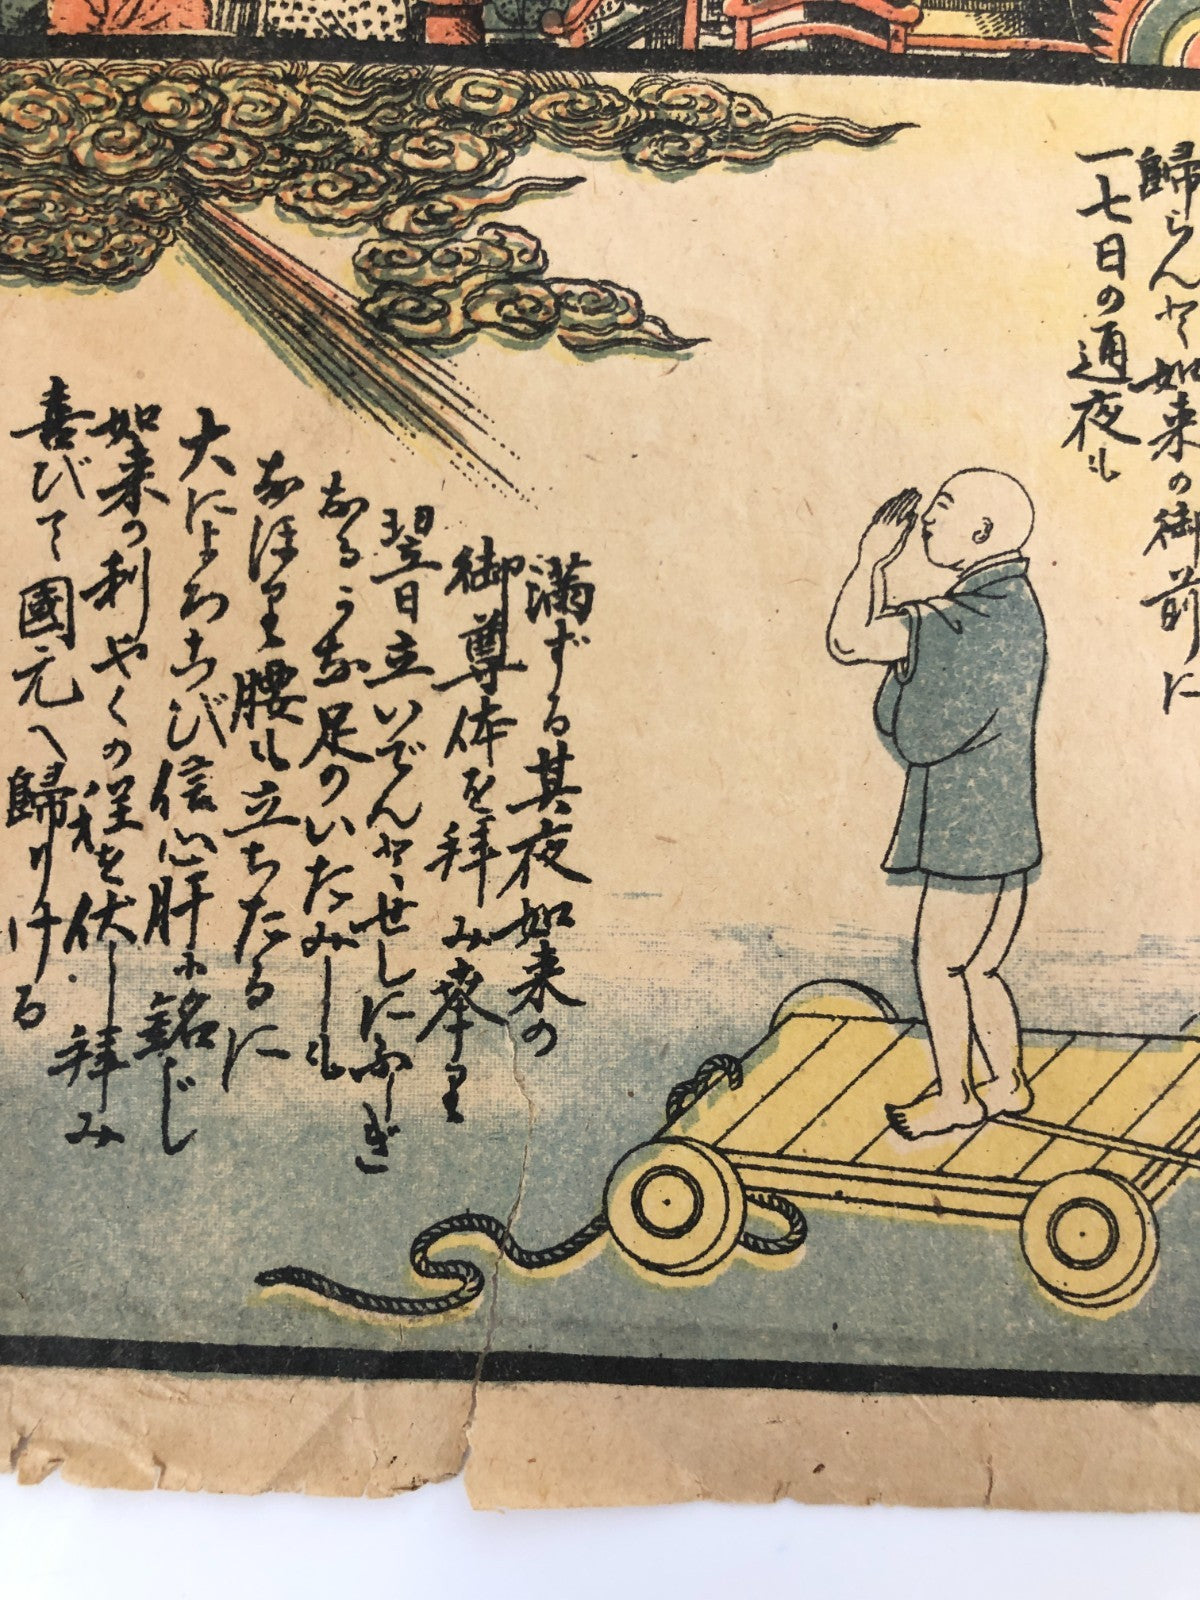 歸らんとて如来の御前に
一七日の通夜も
満ずる其夜如来の
御尊体を拝み奉り
翌日立いでんとせしにふしぎ
なるかな足のいたみしも
なほり腰も立ちたるに
大によろこび信心肝に銘じ
如来の利やくの程を伏し拝み
喜びて國元へ歸りける